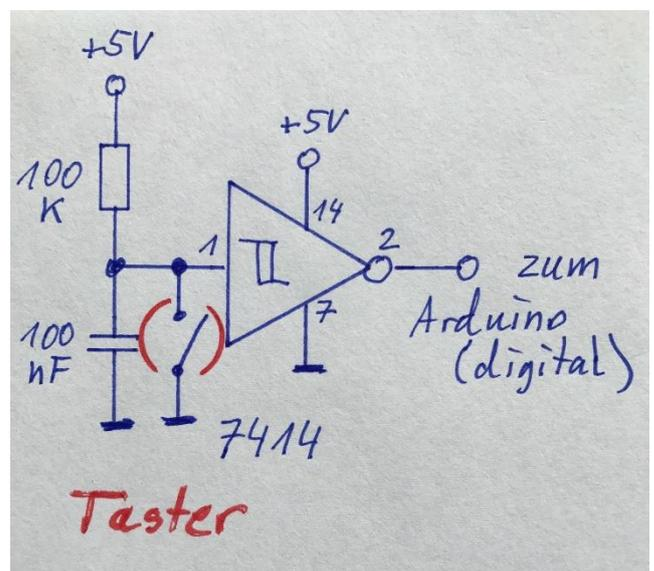 +5V
+5V
100
K
14
1
2
zum
Arduino
(digital)
7
100
nF
7414
Taster